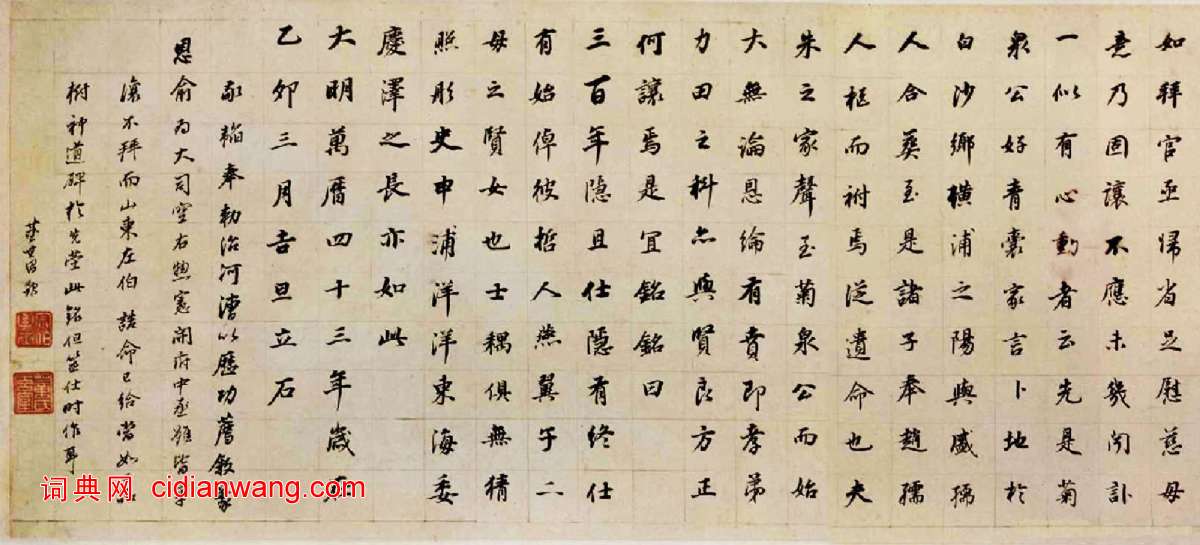 如拜官亟歸省足慰慈母
意乃固讓不應未幾聞訃
一似有心動者云先是菊
泉公好青囊家言卜地於
白沙鄉橫浦之陽與盛孺
人合葬至是諸子奉趙孺
人柩而祔焉從遺命也夫
朱之家聲至菊泉公而始
大無論恩綸有賁即孝弟
力田之科亦與賢良方正
何讓焉是宜銘銘曰
三百年隱且仕隱有終仕
有始倬彼哲人燕翼于二
母之賢女也士耦俱無猜
照彤史申浦洋洋東海委
慶澤之長亦如此
大明萬曆四十三年歲在
乙卯三月吉旦立石
敬韜奉勅治河漕以歷功舊敘蒙
恩俞為大司空右總憲開府中丞雖皆
讓不拜而山東左伯誥命已給當如
樹神道碑於先塋此銘但筮仕時作耳
董其昌題
词典网 cidianwang.com